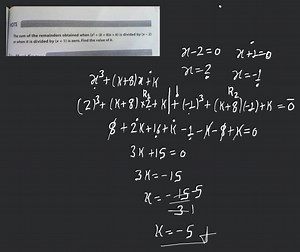 The sum of the remainders obtained when {x³ + (k + 8)x + k} is divided by (x − 2)
or when it is divided by (x + 1) is zero. Find the value of k.
x-2=0 x+1=0
x=2 x=-1
x³+(k+8)x+k
R₁ R₂
(2)³+(k+8)×2+k + (-1)³+(k+8)(-1)+k=0
8+2k+16+k-1-k-8+k=0
3k+15=0
3k=-15
k=-15-5
3 1
k=-5